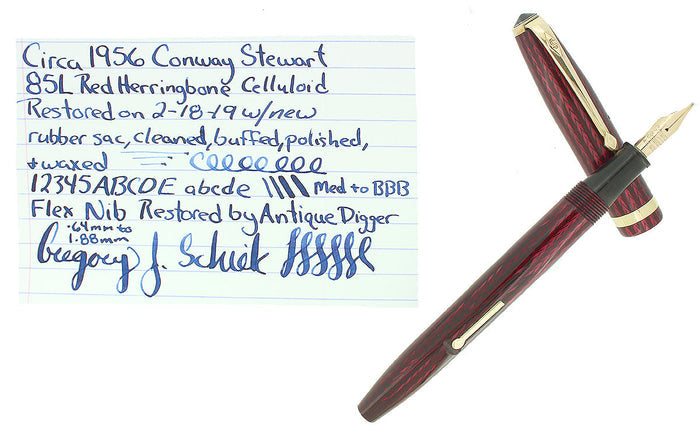 Circa 1956 Conway Stewart
85L Red Herringbone Celluloid
Restored on 2-18-19 w/new
rubber sac, cleaned, buffed, polished,
+ waxed
12345 ABCDE abcde Med to BBB
Flex Nib Restored by Antique Digger
.64mm to
1.88mm
Gregory J. Schiek